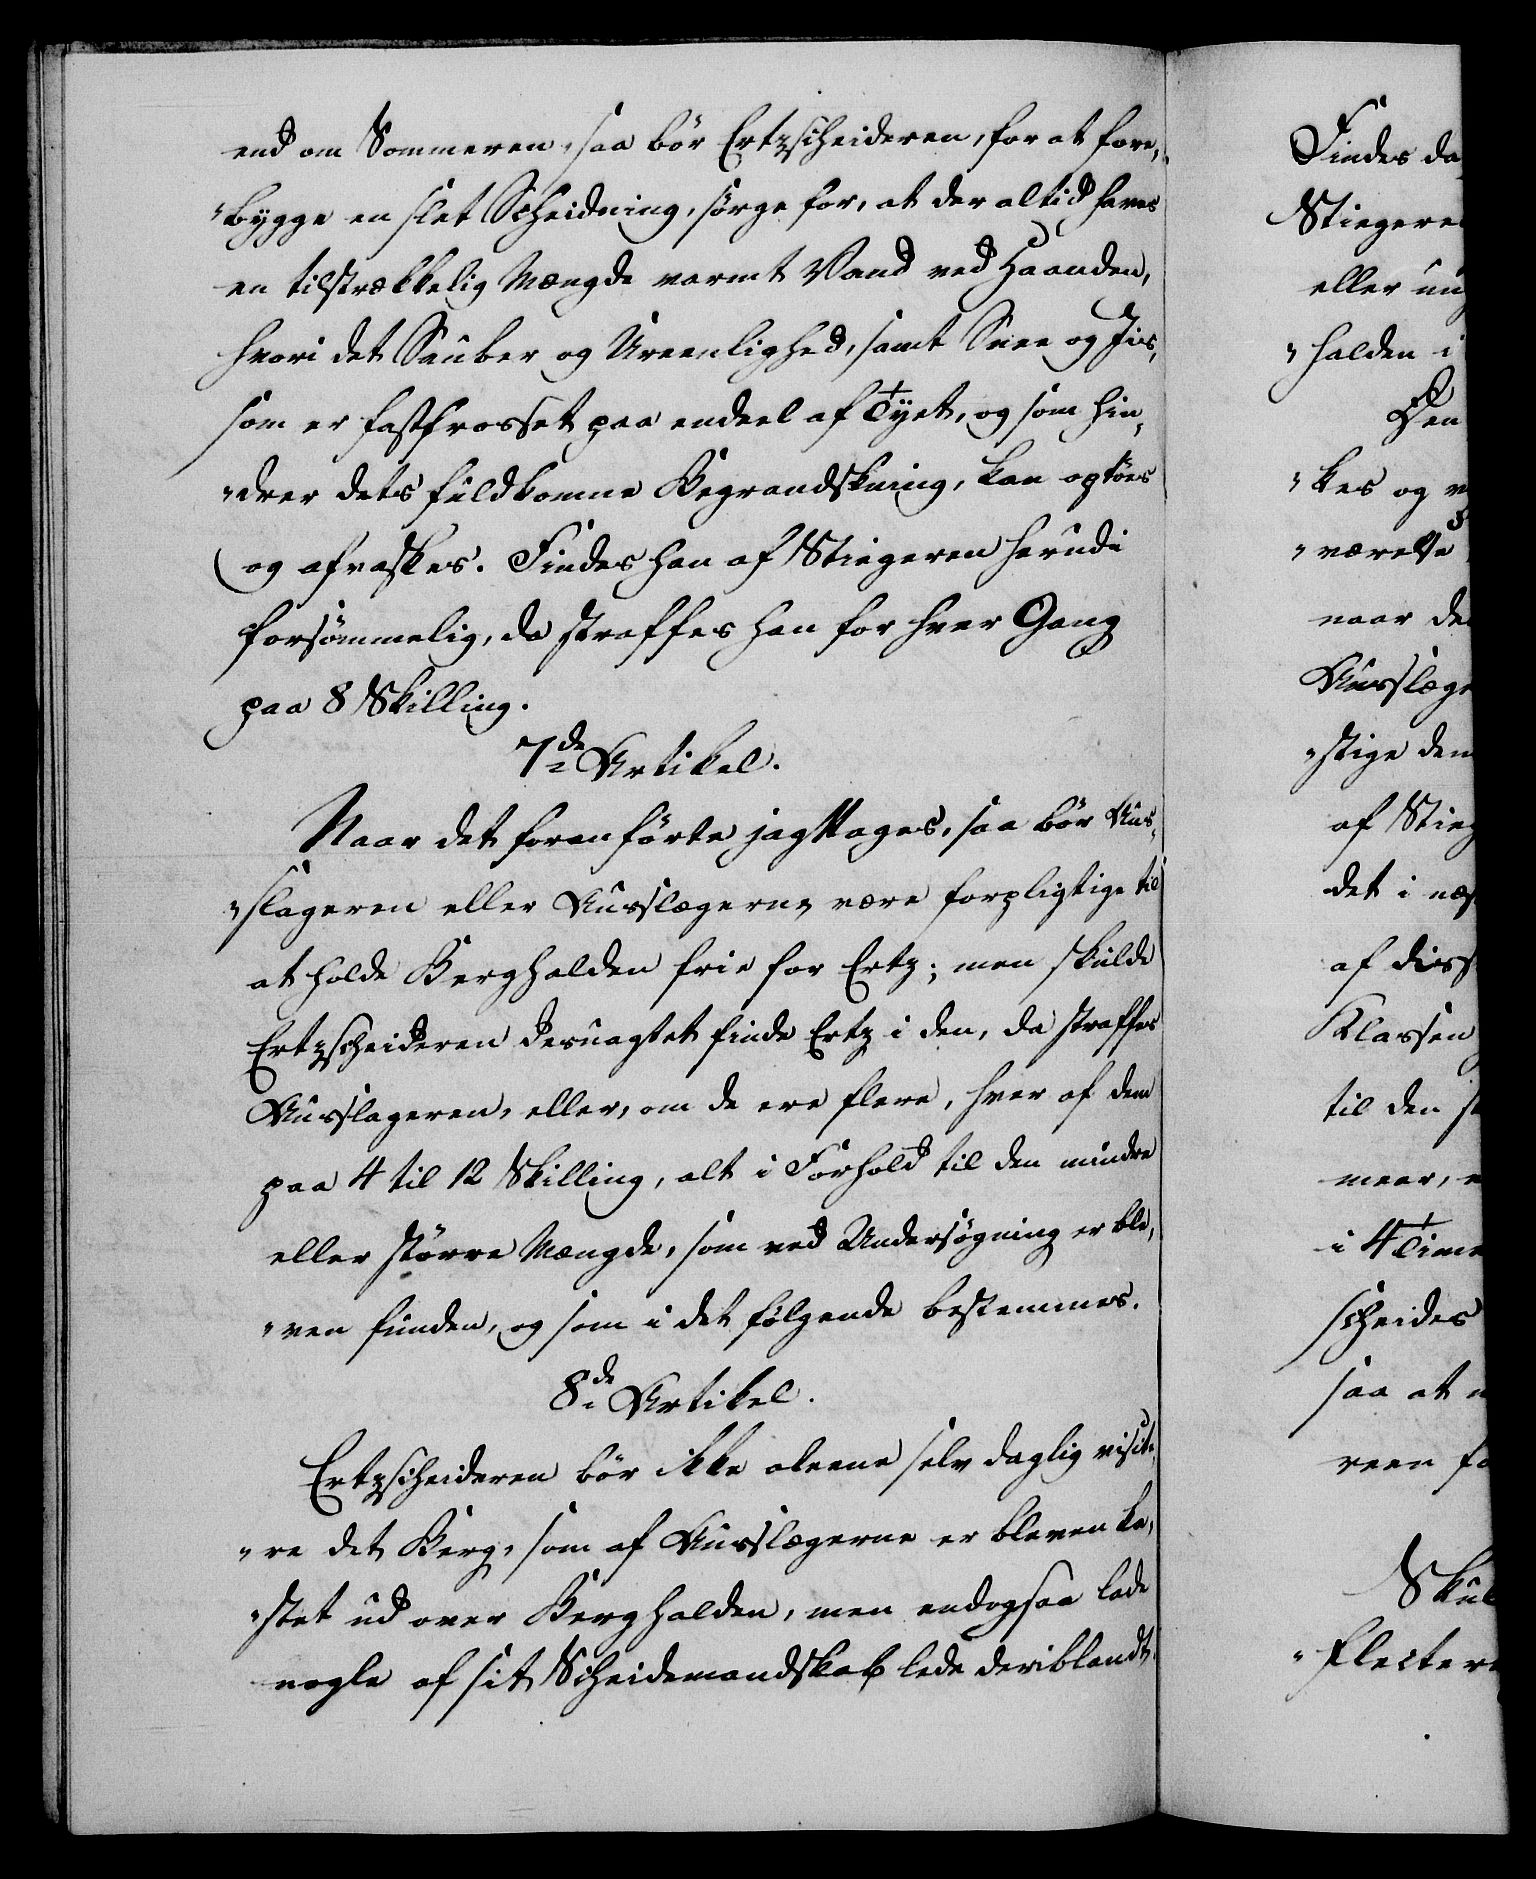 end om Sommeren, saa bör Ertzscheideren, for at fore,
"bygge en slet Scheidning, sörge for, at der altid haves
en tilstrækkelig Mængde varmt Vand ved Haanden,
hvori det Sauber og Ureenlighed, samt Snee og Jis,
som er fastfrosset paa endeel af Tyet, og som hin,
"drer dets fuldkomne Begrandskning, kan optöes
og afvaskes. Findes han af Stigeren herudi
forsömmelig, da straffes han for hver Gang
paa 8 Skilling.
7de Artikel.
Naar det foranförte jagttages, saa bör Aus,
"slageren eller Ausslægerne være forpligtige til
at holde Berghalden frie for Ertz; men skulde
Ertzscheideren desuagtet finde Ertz i den, da straffes
Ausslageren, eller, om de ere flere, hver af dem
paa 4 til 12 Skilling, alt i Forhold til den mindre
eller större Mængde, som ved Undersögning er ble,
"ven funden, og som i det fölgende bestemmes.
8de Artikel.
Ertzscheideren bör ikke aleene selv daglig visite,
"re det Berg, som af Ausslægerne er bleven ka,
"stet ud over Berghalden, men endogsaa lade
nogle af sit Scheidemandskab lede deriblandt.
Findes da
Stigere
eller
"halden i
Den
"kes og
"værelse
naar de
Ausslæge
"stige dem
af Stieg
det i næs
af diss
Klassen
til den
meer,
i 4 Time
scheides
saa at
reen fo
Skul
"flectere